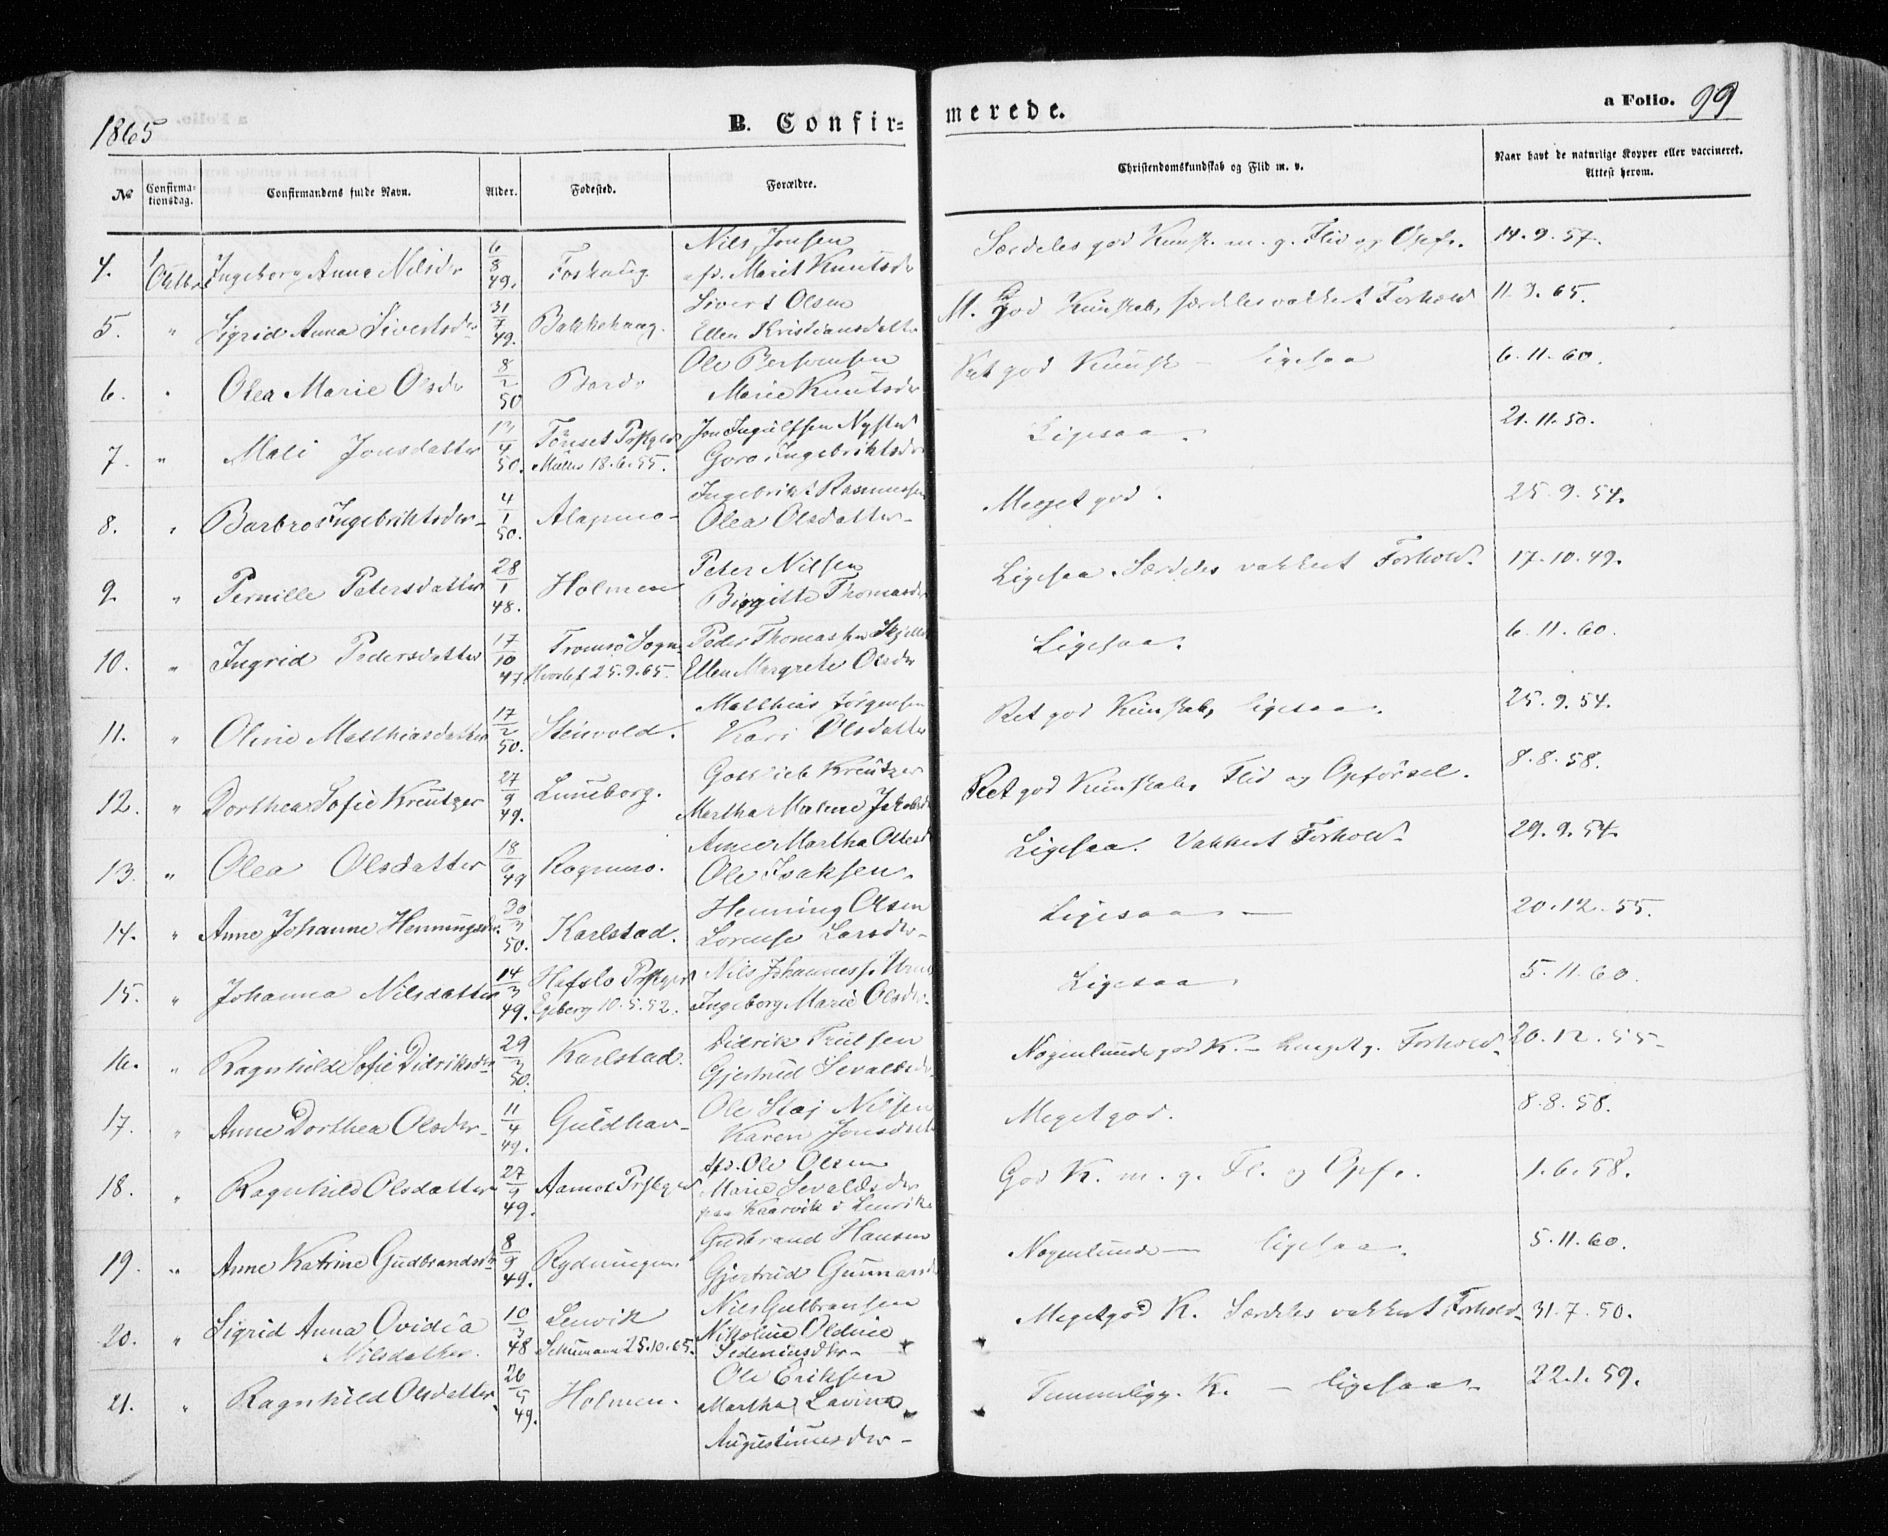 1865
B. Confirmerede.
a Folio. 99
No
Confirmationsdag.
Confirmandens fulde Navn.
Alder.
Fødested.
Forældre.
Christendomskundskab og Flid m. v.
Naar havt de naturlige Kopper eller vaccineret. Attest herom.
4. 1 Octbr Ingeborg Anna Nilsdr 6/8 49. Foshaug Nils Jonsen
afd. Marit Knutsdr Særdeles god Kunsk. m. g. Flid og Opf. 14.9.57.
5. " Sigrid Anna Sivertsdr 31/7 49. Bakkehaug. Sivert Olsen
Ellen Kristiansdattr M. God Kunskab, særdeles vakkert Forhold 11.9.65.
6. " Olea Marie Olsdr 8/2 50 Bardo Ole
Marie Knutsdr Ret god Kunsk ligesaa 6.11.60.
7. " Mali Jonsdatter 13/4 50. Tønset Præstgjd
Müller 18.6.55. Jon Ingulfsen Nysted
Goro Ingebriktsdr Ligesaa. 21.11.50.
8. " Barbro Ingebriktsdr 4/1 50. Alapmo Ingebrikt Rasmussen
Olea Olsdatter Meget god. 25.9.54.
9. " Pernille Petersdatter 28/1 48. Holmen Peter Nilsen
Birgitte Thomasdr Ligesaa. Særdeles vakkert Forhold. 17.10.49.
10. " Ingrid Pedersdatter 17/10 47 Tromsö Sogn
25.9.65. Peder Thomassen
Ellen Margrete Olsdr Ligesaa. 6.11.60.
11. " Oline Matthiasdatter 17/2 50. Stenvold. Matthias Jørgensen
Kari Olsdatter Ret god Kunskab, ligesaa. 25.9.54.
12. " Dorthea Sofie Kreutzer 27/9 49. Luneborg. Gottlieb Kreutzer
Martha Malene Jakobsdr Ret god Kunskab, Flid og Opförsel. 8.8.58.
13. " Olea Olsdatter 18/6 49 Rognmo. Anne Martha Olsdr
Ole Isaksen. Ligesaa. Vakkert Forhold. 29.9.54.
14. " Anne Johanne Henningsdr. 30/3 50. Karlstad. Henning Olsen
Lorense Larsdr Ligesaa 20.12.55.
15. " Johanna Nilsdatter 14/3 49. Hafslo Præstgjd
Egeberg 10.5.52. Nils Johannes.
Ingeborg Marie Olsdr. Ligesaa 5.11.60.
16. " Ragnhild Sofie Didriksdr 29/3 50. Karlstad. Didrik Trulsen
Gjertrud Sevaldsdr Nogenlunde god K. Forhold. 20.12.55
17. " Anne Dorthea Olsdr 11/4 49. Guldhav Ole Staj Nilsen
Karen Jonsdatt Meget god. 8.8.58.
18. " Ragnhild Olsdatter 27/9 49. Aamot Præstgjd Afd. Ole Olsen
Marie Sevaldsdr
paa Kaarvik i Lenvik God K. m. g. Fl. og Opf. 1.6.58.
19. " Anne Katrine Gudbrandsdr 8/9 49. Rydningen. Gudbrand Hansen
Gjertrud Gunnarsd Nogenlunde ligesaa. 5.11.60.
20. " Sigrid Anna Ovidia
Nilsdatter. 10/3 48 Lenvik
Schumann 25.10.65. Nils Gulbransen
Nikoline Oldine
Sedeniusdr Meget god K. Særdeles vakkert Forhold 31.7.50.
21. " Ragnhild Olsdatter 26/5 49. Holmen. Ole Eriksen
Martha Lavina
Augustinusdr Temmelig g. K. ligesaa 22.1.59.